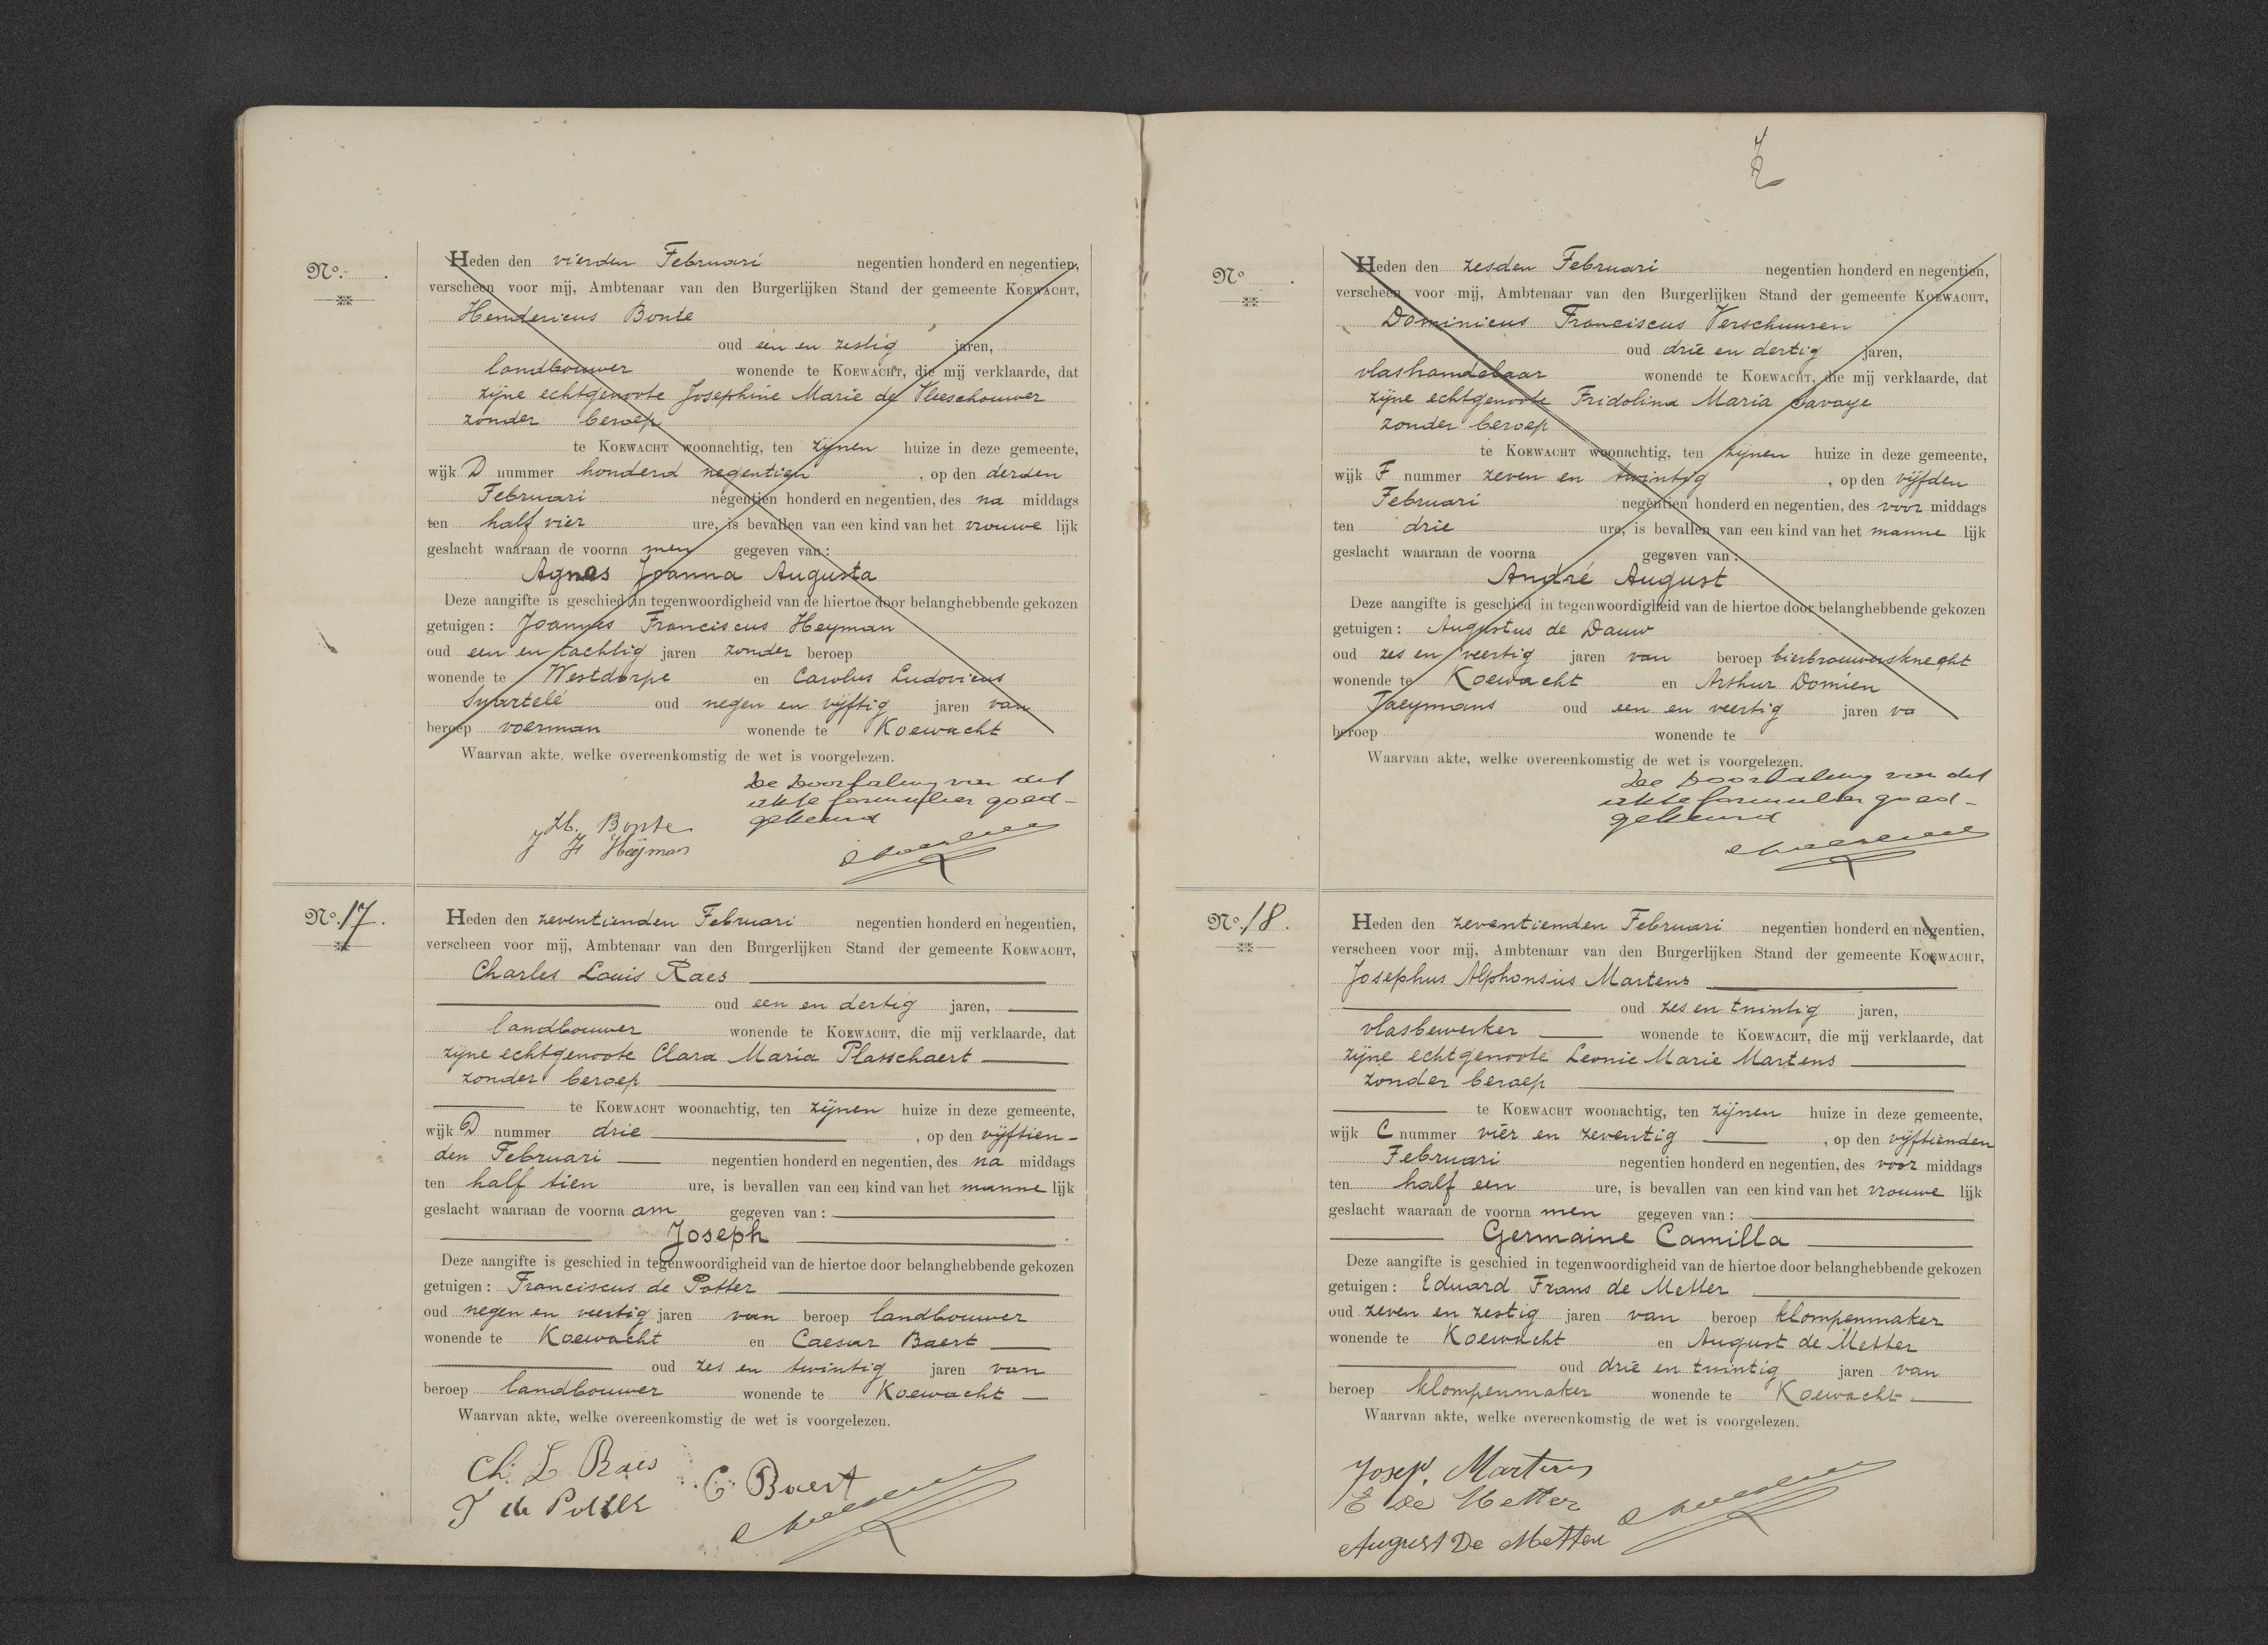 Nº. .
Heden den vierden Februari negentien honderd en negentien,
verscheen voor mij, Ambtenaar van den Burgerlijken Stand der gemeente KOEWACHT,
Hendericus Bonte
oud een en zestig jaren,
landbouwer wonende te KOEWACHT, die mij verklaarde, dat
zijne echtgenoote Josephine Marie de Vleeschouwer
zonder beroep
te KOEWACHT woonachtig, ten zijnen huize in deze gemeente,
wijk D nummer honderd negentien, op den derden
Februari negentien honderd en negentien, des na middags
ten half vier ure, is bevallen van een kind van het vrouwe lijk
geslacht waaraan de voorna men gegeven van:
Agnes Joanna Augusta
Deze aangifte is geschied in tegenwoordigheid van de hiertoe door belanghebbende gekozen
getuigen: Joannes Franciscus Heyman
oud een en tachtig jaren zonder beroep
wonende te Westdorpe en Carolus Ludovicus
Swartelé oud negen en vijftig jaren van
beroep voerman wonende te Koewacht
Waarvan akte, welke overeenkomstig de wet is voorgelezen.
De Doorhaling van dit
akte formulier goed-
gekeurd
H. Bonte
J F Heijman
Nº. 17.
Heden den zeventienden Februari negentien honderd en negentien,
verscheen voor mij, Ambtenaar van den Burgerlijken Stand der gemeente KOEWACHT,
Charles Louis Raes
oud een en dertig jaren,
landbouwer wonende te KOEWACHT, die mij verklaarde, dat
zijne echtgenoote Clara Maria Plasschaert
zonder beroep
te KOEWACHT woonachtig, ten zijnen huize in deze gemeente,
wijk D nummer drie, op den vijftien-
den Februari negentien honderd en negentien, des na middags
ten half tien ure, is bevallen van een kind van het manne lijk
geslacht waaraan de voorna am gegeven van:
Joseph
Deze aangifte is geschied in tegenwoordigheid van de hiertoe door belanghebbende gekozen
getuigen: Franciscus de Potter
oud negen en veertig jaren van beroep landbouwer
wonende te Koewacht en Caesar Baert
oud zes en twintig jaren van
beroep landbouwer wonende te Koewacht
Waarvan akte, welke overeenkomstig de wet is voorgelezen.
Ch. L Raes
C Baert
F de Potter
Nº .
Heden den zesden Februari negentien honderd en negentien,
verscheen voor mij, Ambtenaar van den Burgerlijken Stand der gemeente KOEWACHT,
Dominicus Franciscus Verschuuren
oud drie en dertig jaren,
vlashandelaar wonende te KOEWACHT, die mij verklaarde, dat
zijne echtgenoote Fridolina Maria Savoye
zonder beroep
te KOEWACHT woonachtig, ten zijnen huize in deze gemeente,
wijk F nummer zeven en twintig, op den vijfden
Februari negentien honderd en negentien, des voor middags
ten drie ure, is bevallen van een kind van het manne lijk
geslacht waaraan de voorna gegeven van:
André August
Deze aangifte is geschied in tegenwoordigheid van de hiertoe door belanghebbende gekozen
getuigen: Augustus de Dauw
oud zes en veertig jaren van beroep bierbrouwersknecht
wonende te Koewacht en Arthur Domien
Taeymans oud een en veertig jaren va
beroep wonende te
Waarvan akte, welke overeenkomstig de wet is voorgelezen.
De Doorhaling van dit
akte formulier goed-
gekeurd
Nº. 18.
Heden den zeventienden Februari negentien honderd en negentien,
verscheen voor mij, Ambtenaar van den Burgerlijken Stand der gemeente KOEWACHT,
Josephus Alphonsus Martens
oud zes en tuintig jaren,
vlasbewerker wonende te KOEWACHT, die mij verklaarde, dat
zijne echtgenoote Leonie Marie Martens
zonder beroep
te KOEWACHT woonachtig, ten zijnen huize in deze gemeente,
wijk C nummer vier en zeventig, op den vijftienden
Februari negentien honderd en negentien, des voor middags
ten half een ure, is bevallen van een kind van het vrouwe lijk
geslacht waaraan de voorna men gegeven van:
Germaine Camilla
Deze aangifte is geschied in tegenwoordigheid van de hiertoe door belanghebbende gekozen
getuigen: Eduard Frans de Metter
oud zeven en zestig jaren van beroep klompenmaker
wonende te Koewacht en August de Metter
oud drie en tuintig jaren van
beroep klompenmaker wonende te Koewacht
Waarvan akte, welke overeenkomstig de wet is voorgelezen.
Josep. Martens
E De Metter
August De Metter